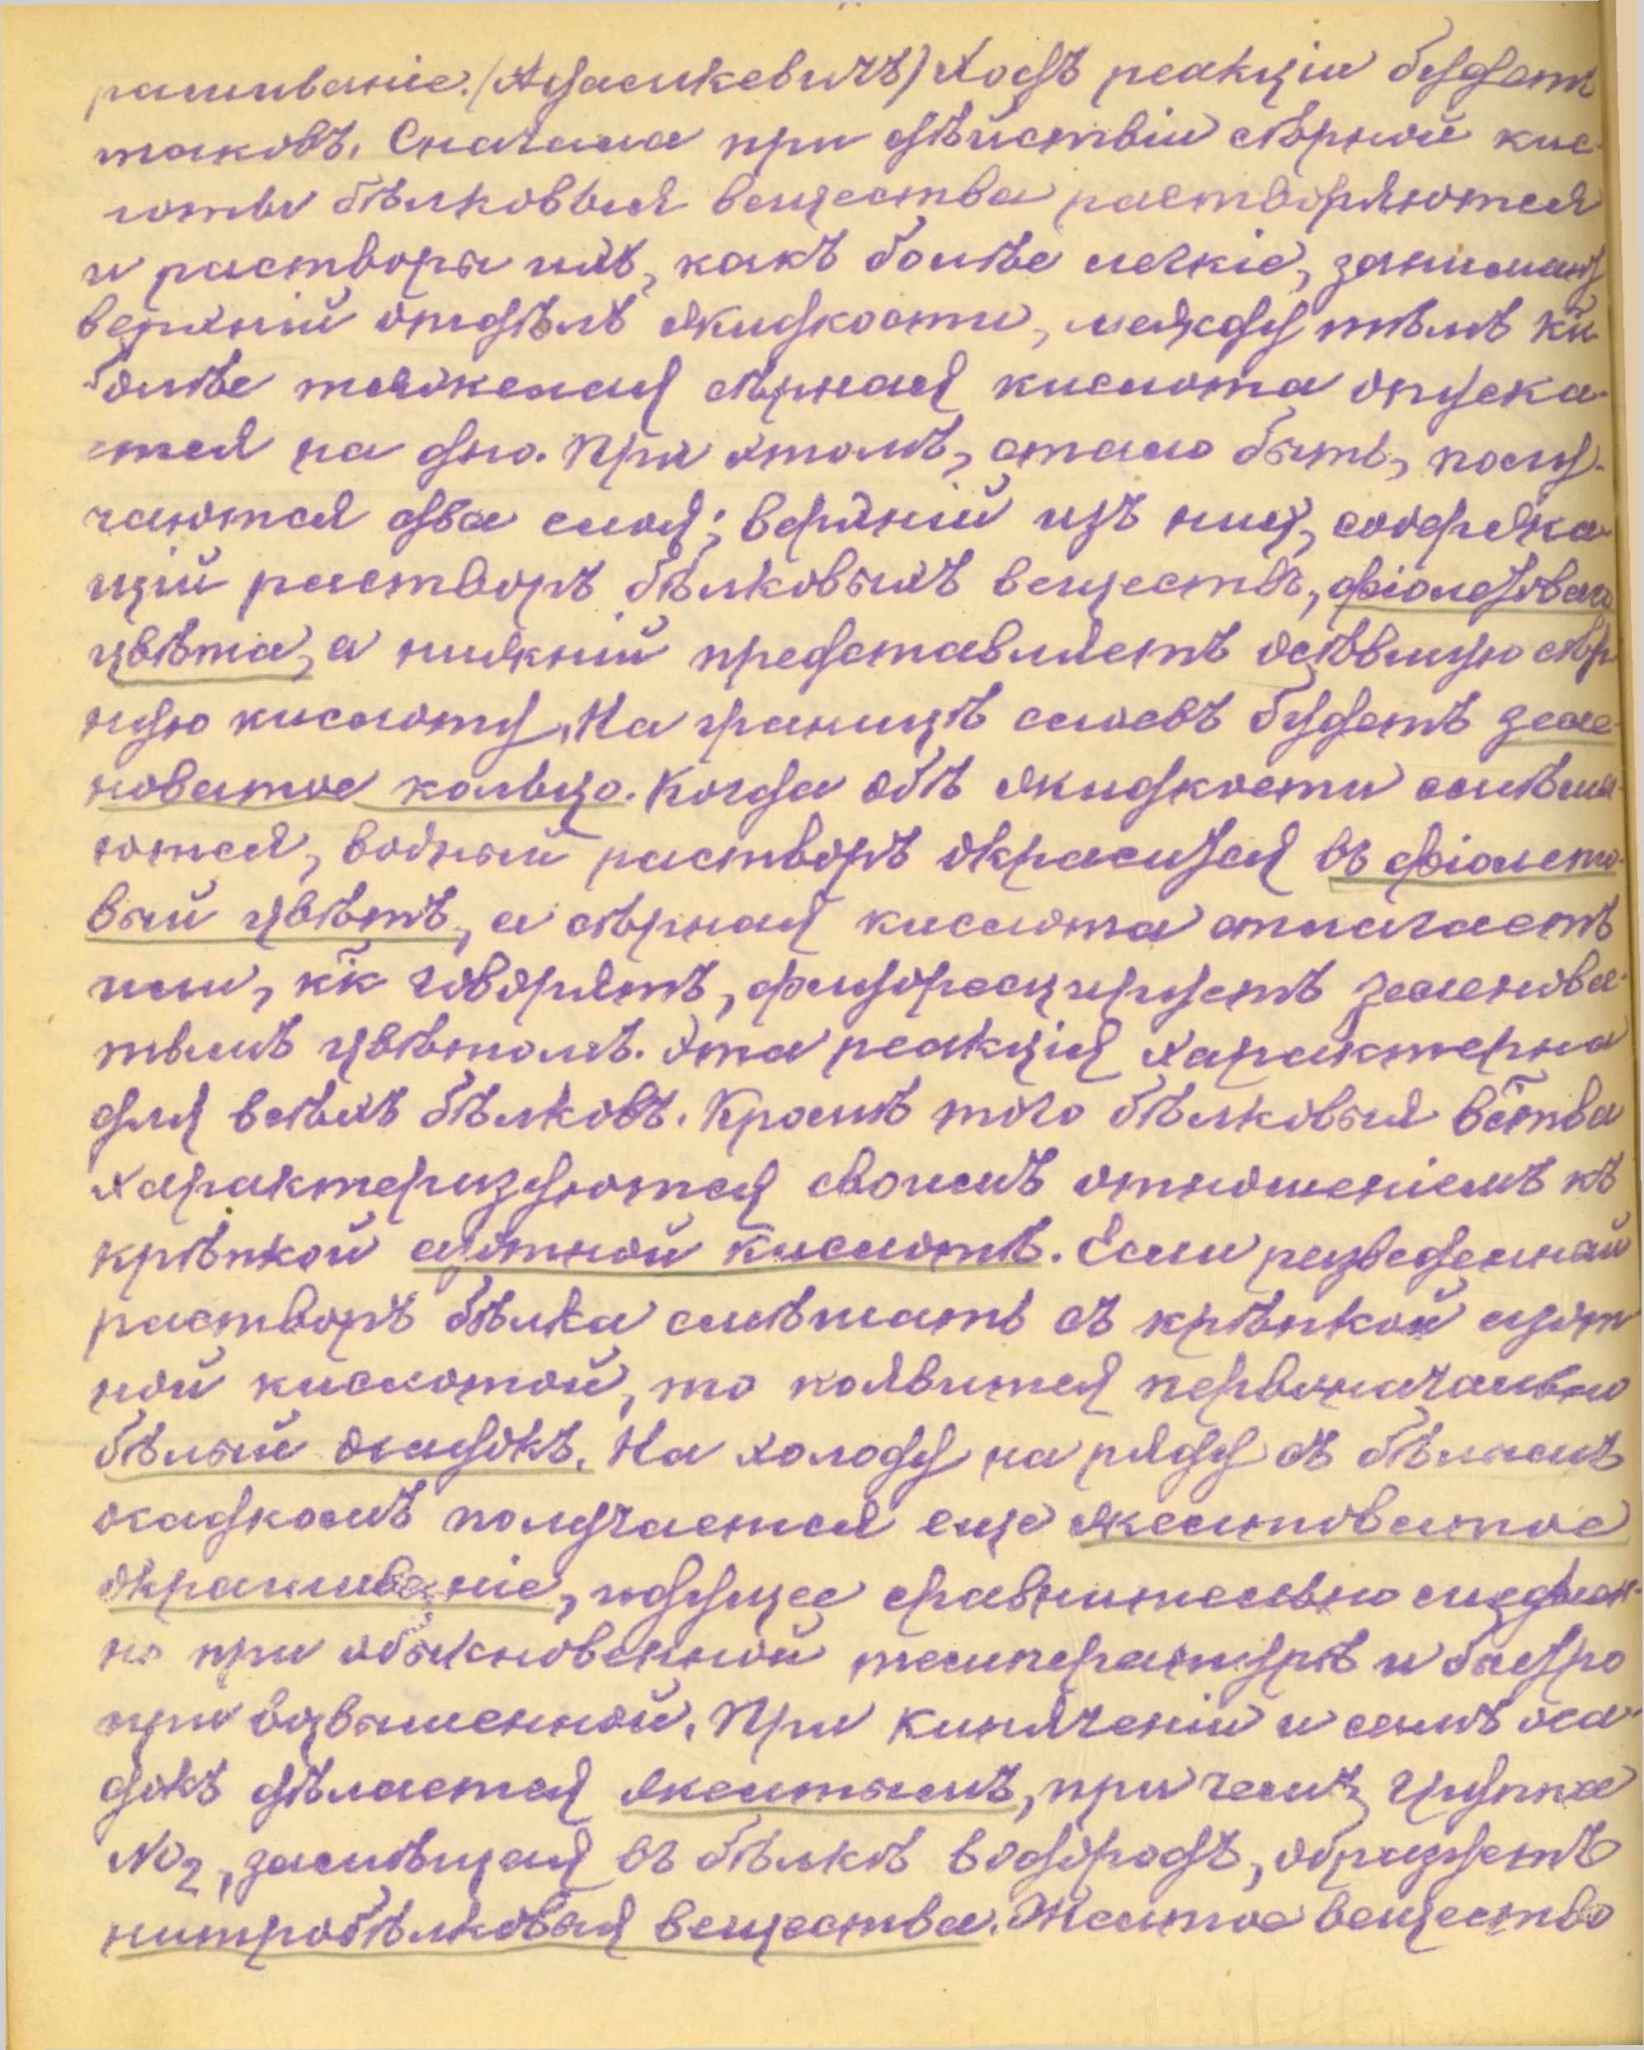 рашиваніе. (Адамкевичъ) Ходъ реакціи будетъ
таковъ. Сначала при дѣйствіи сѣрной кис-
лоты бѣлковыя вещества растворяются
и растворы ихъ, какъ болѣе легкіе, занимаютъ
верхній отдѣлъ жидкости, между тѣмъ кк
болѣе тяжелая сѣрная кислота опуска-
ется на дно. При этомъ, стало быть, полу-
чаются два слоя; верхній изъ нихъ, содержа-
щій растворъ бѣлковыхъ веществъ, фіолетоваго
цвѣта, а нижній представляетъ осѣвшую сѣр
ную кислоту. На границѣ слоевъ будетъ зеле-
новатое кольцо. Когда обѣ жидкости смѣша-
ются, водный растворъ окрасится въ фіолето-
вый цвѣтъ, а сѣрная кислота отличаетъ
или, кк говорятъ, флуоресцируетъ зеленова-
тымъ цвѣтомъ. Эта реакція характерна
для всѣхъ бѣлковъ. Кромѣ того бѣлковыя вства
характеризуются своимъ отношеніемъ къ
крѣпкой азотной кислотѣ. Если разведенный
растворъ бѣлка смѣшать съ крѣпкой азот
ной кислотой, то появится первоначально
бѣлый осадокъ. На холоду на ряду съ бѣлымъ
осадкомъ получается еще желтоватое
окрашиваніе, идущее сравнительно медлен-
но при обыкновенной температурѣ и быстро
при возвышенной. При кипяченіи и самъ оса-
докъ дѣлается желтымъ, при чемъ группа
NO2, замѣщая въ бѣлкѣ водородъ, образуетъ
нитробѣлковыя вещества. Желтое вещество